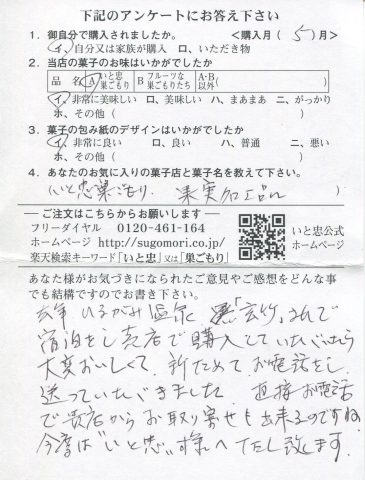 下記のアンケートにお答え下さい
1．御自分で購入されましたか。 ＜購入月（ 5 ）月＞
イ、自分又は家族が購入 ロ、いただき物
2．当店の菓子のお味はいかがでしたか
品 名 A いと忠巣ごもり B フルーツな巣ごもりたち A･B以外（ ）
イ、非常に美味しい ロ、美味しい ハ、まあまあ ニ、がっかり
ホ、その他（ ）
3．菓子の包み紙のデザインはいかがでしたか
イ、非常に良い ロ、良い ハ、普通 ニ、悪い
ホ、その他（ ）
4．あなたのお気に入りの菓子店と菓子名を教えて下さい。
（いと忠巣ごもり、果実加工品 ）
― ご注文はこちらからお願いします ―
フリーダイヤル 0120-461-164
ホームページ http://sugomori.co.jp/
楽天検索キーワード「いと忠」又は「巣ごもり」
いと忠公式
ホームページ
あなた様がお気づきになられたご意見やご感想をどんな事
でも結構ですのでお書き下さい。
去年 ひるがみ温泉 「玄竹」さんで
宿泊をし売店で購入させていただいたら
大変おいしくて、新ためて お電話をし
送っていただきました。直接お電話
で貴店からお取り寄せも出来るのですね
今度は"いと忠"様へ TEL致します